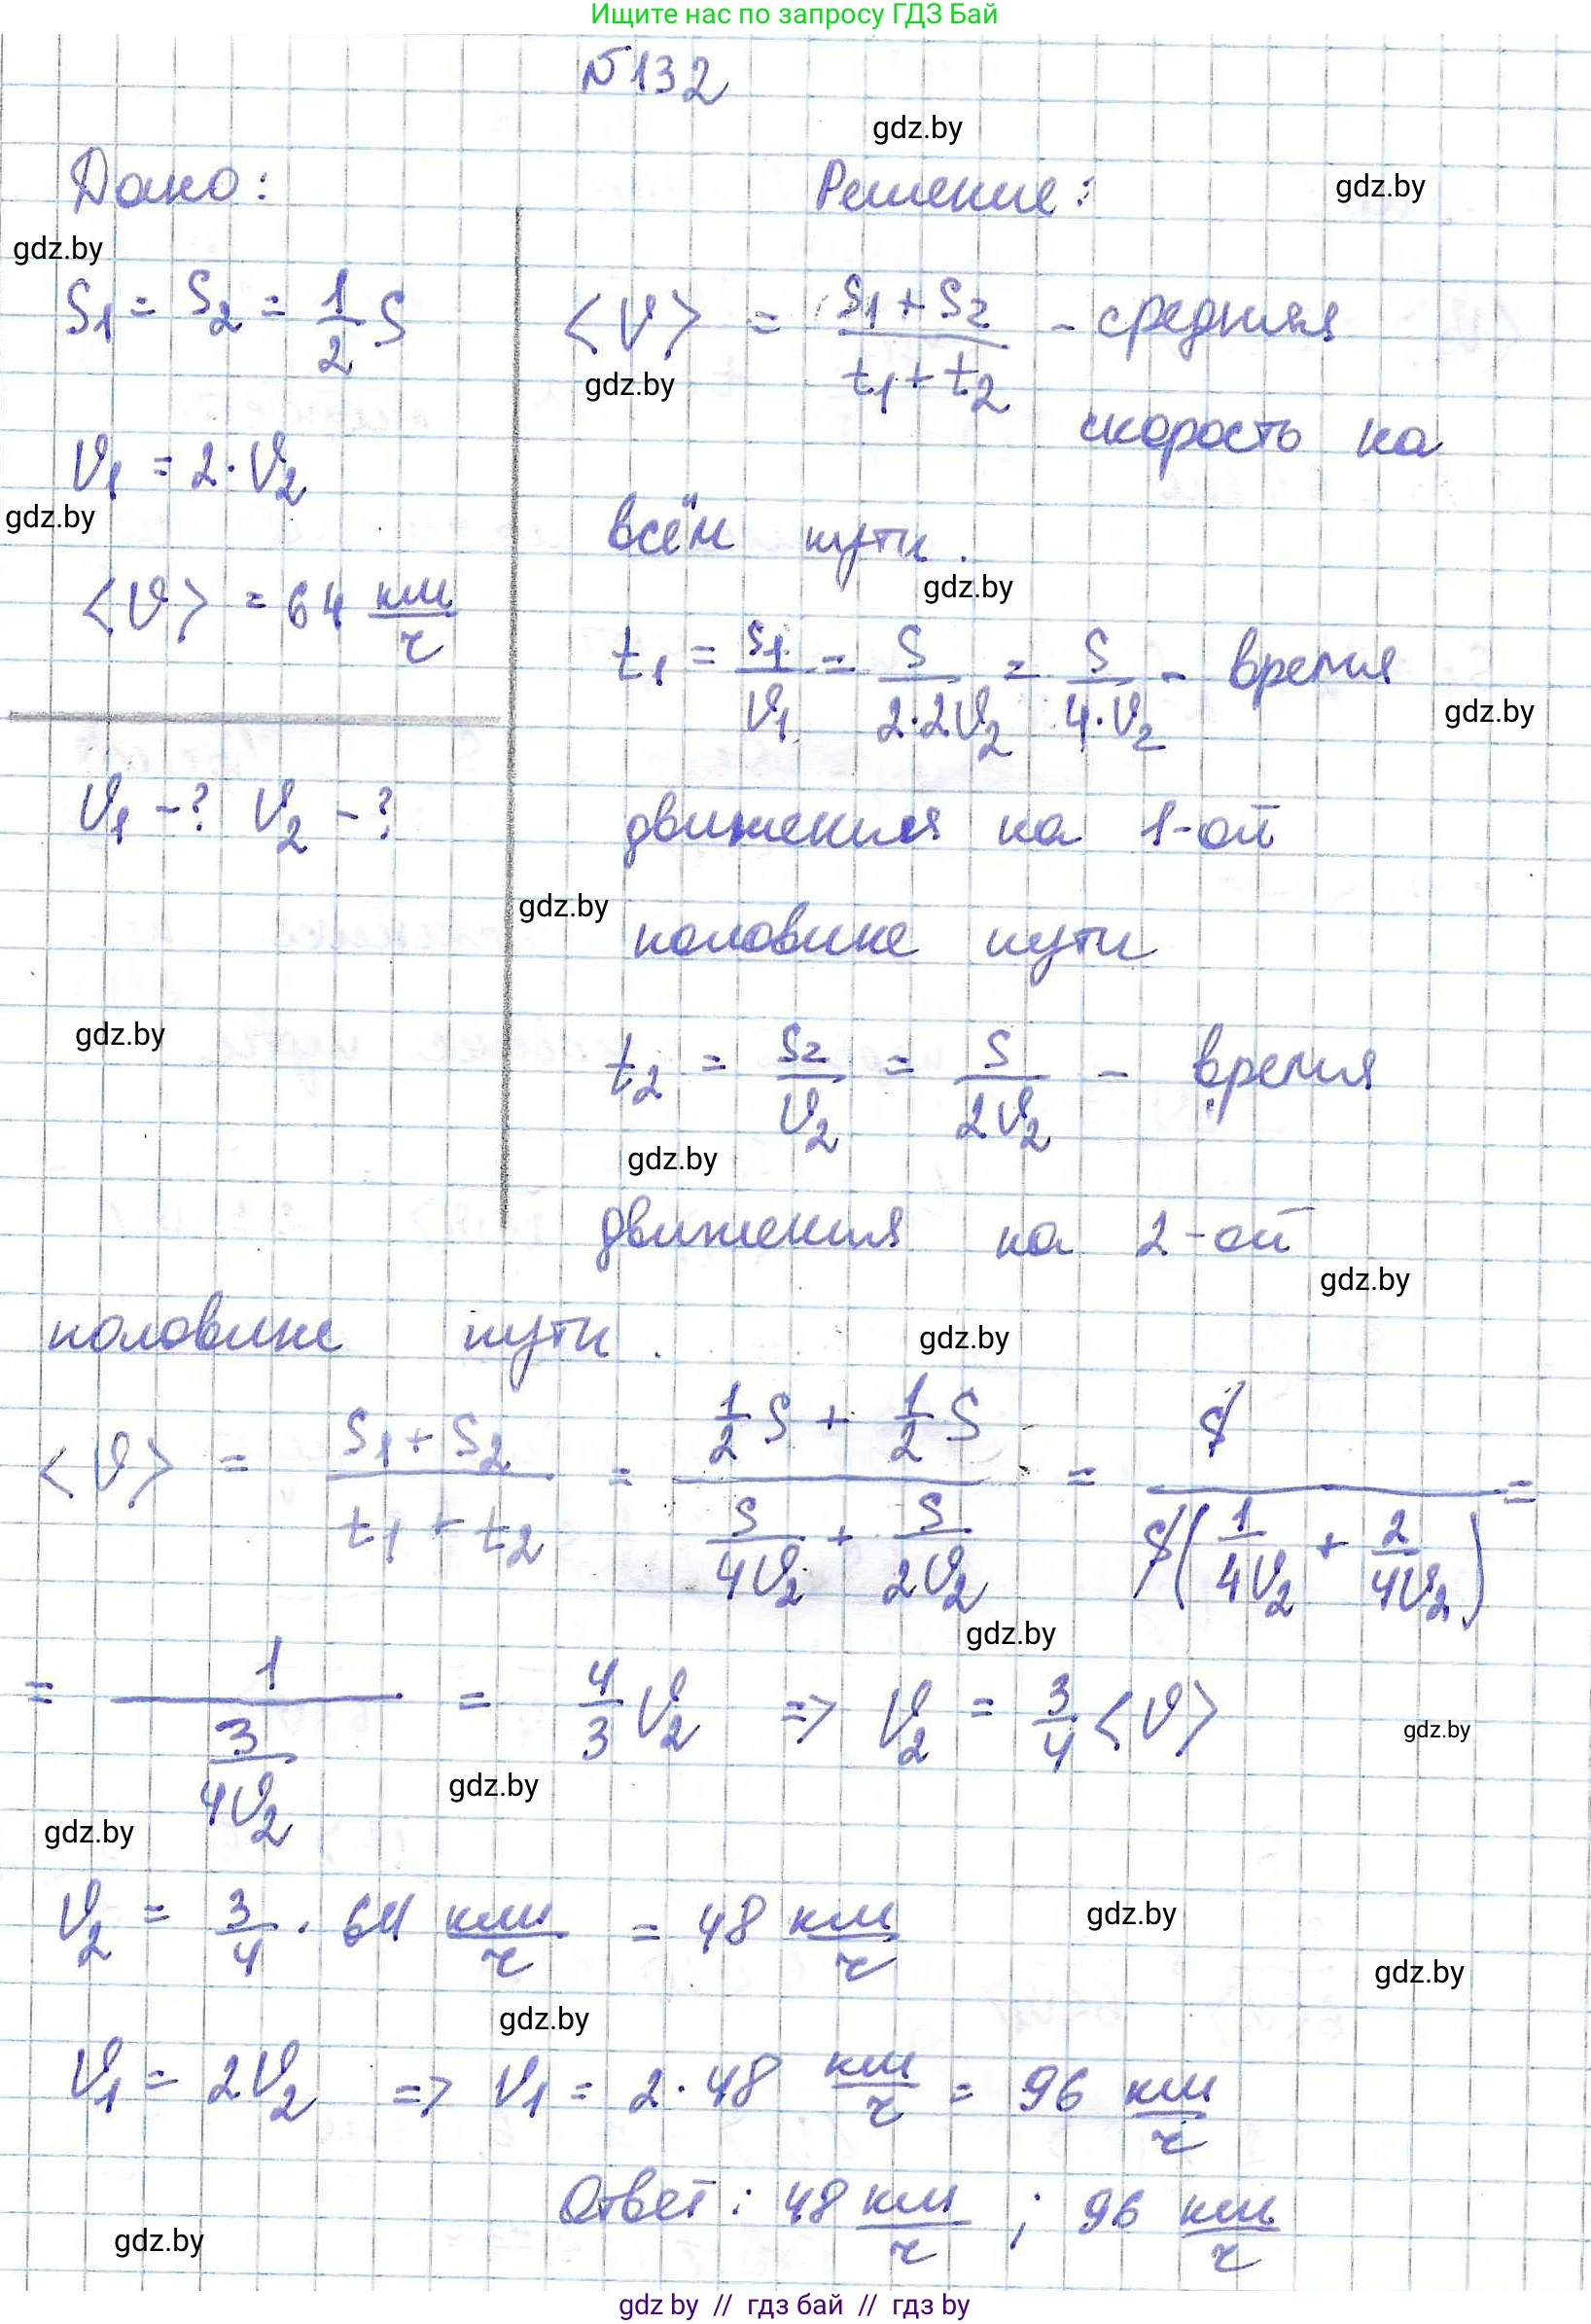 Ищите нас по запросу ГДЗ Бай
№132
gdz.by
Дано:
Решение:
gdz.by
gdz.by
S₁ = S₂ = 1/2 S
⟨V⟩ = (S₁ + S₂)/(t₁ + t₂) - средняя
gdz.by
скорость на
V₁ = 2·V₂
gdz.by
всём пути.
⟨V⟩ = 64 км/ч
gdz.by
t₁ = S₁/V₁ = S/(2·2V₂) = S/(4·V₂) - время
gdz.by
V₁ -? V₂ -?
движения на 1-ой
gdz.by
половине пути
gdz.by
t₂ = S₂/V₂ = S/(2V₂) - время
gdz.by
движения на 2-ой
gdz.by
половине пути.
gdz.by
⟨V⟩ = (S₁ + S₂)/(t₁ + t₂) = (1/2 S + 1/2 S)/(S/(4V₂) + S/(2V₂)) = S/(S(1/(4V₂) + 2/(4V₂))) =
gdz.by
= 1/(3/(4V₂)) = 4/3 V₂ => V₂ = 3/4 ⟨V⟩
gdz.by
gdz.by
gdz.by
V₂ = 3/4 · 64 км/ч = 48 км/ч
gdz.by
gdz.by
gdz.by
V₁ = 2V₂ => V₁ = 2·48 км/ч = 96 км/ч
Ответ: 48 км/ч ; 96 км/ч
gdz.by
gdz by // гдз бай // гдз by